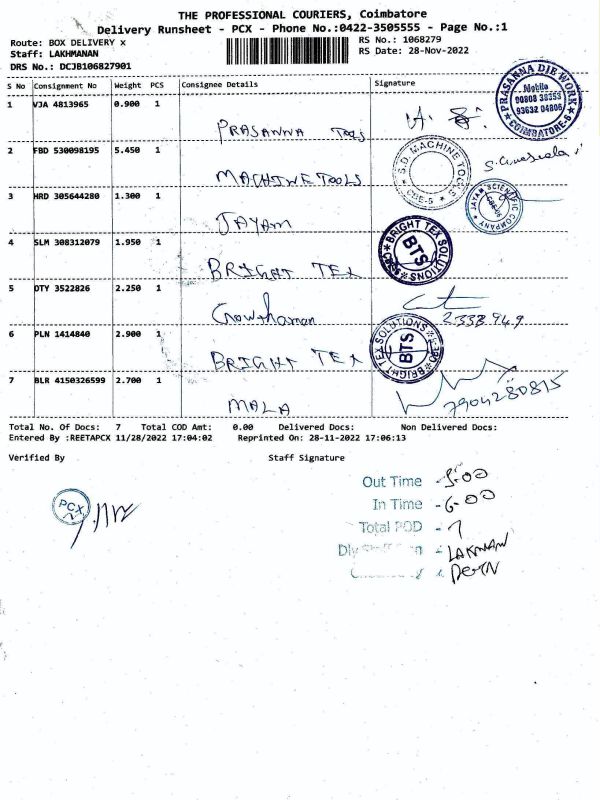 THE PROFESSIONAL COURIERS, Coimbatore
Delivery Runsheet - PCX - Phone No.:0422-3505555 - Page No.:1
Route: BOX DELIVERY x
RS No.: 1068279
Staff: LAKHMANAN
RS Date: 28-Nov-2022
DRS No.: DCJB106827901
S No Consignment No Weight PCS Consignee Details Signature
1 VJA 4813965 0.900 1
PRASANNA TOOLS
PRASANNA DIE WORK
Mobile
COIMBATORE-6
2 FBD 530098195 5.450 1
MACHINE TOOLS
S.D. MACHINE TOOLS
CBE-6
3 HRD 305644280 1.300 1
JAYAM
JAYAM SCIENTIFIC COMPANY
4 SLM 308312079 1.950 1
BRIGHT TEX
BRIGHT TEX SOLUTIONS
BTS
5 OTY 3522826 2.250 1
Gowthaman
6 PLN 1414840 2.900 1
BRIGHT TEX
BRIGHT TEX SOLUTIONS
BTS
7 BLR 4150326599 2.700 1
MALA
7904280815
Total No. Of Docs: 7 Total COD Amt: 0.00 Delivered Docs: Non Delivered Docs:
Entered By :REETAPCX 11/28/2022 17:04:02 Reprinted On: 28-11-2022 17:06:13
Verified By Staff Signature
PCX
Out Time
In Time - 6-00
Total POD - 7
LAKMAN